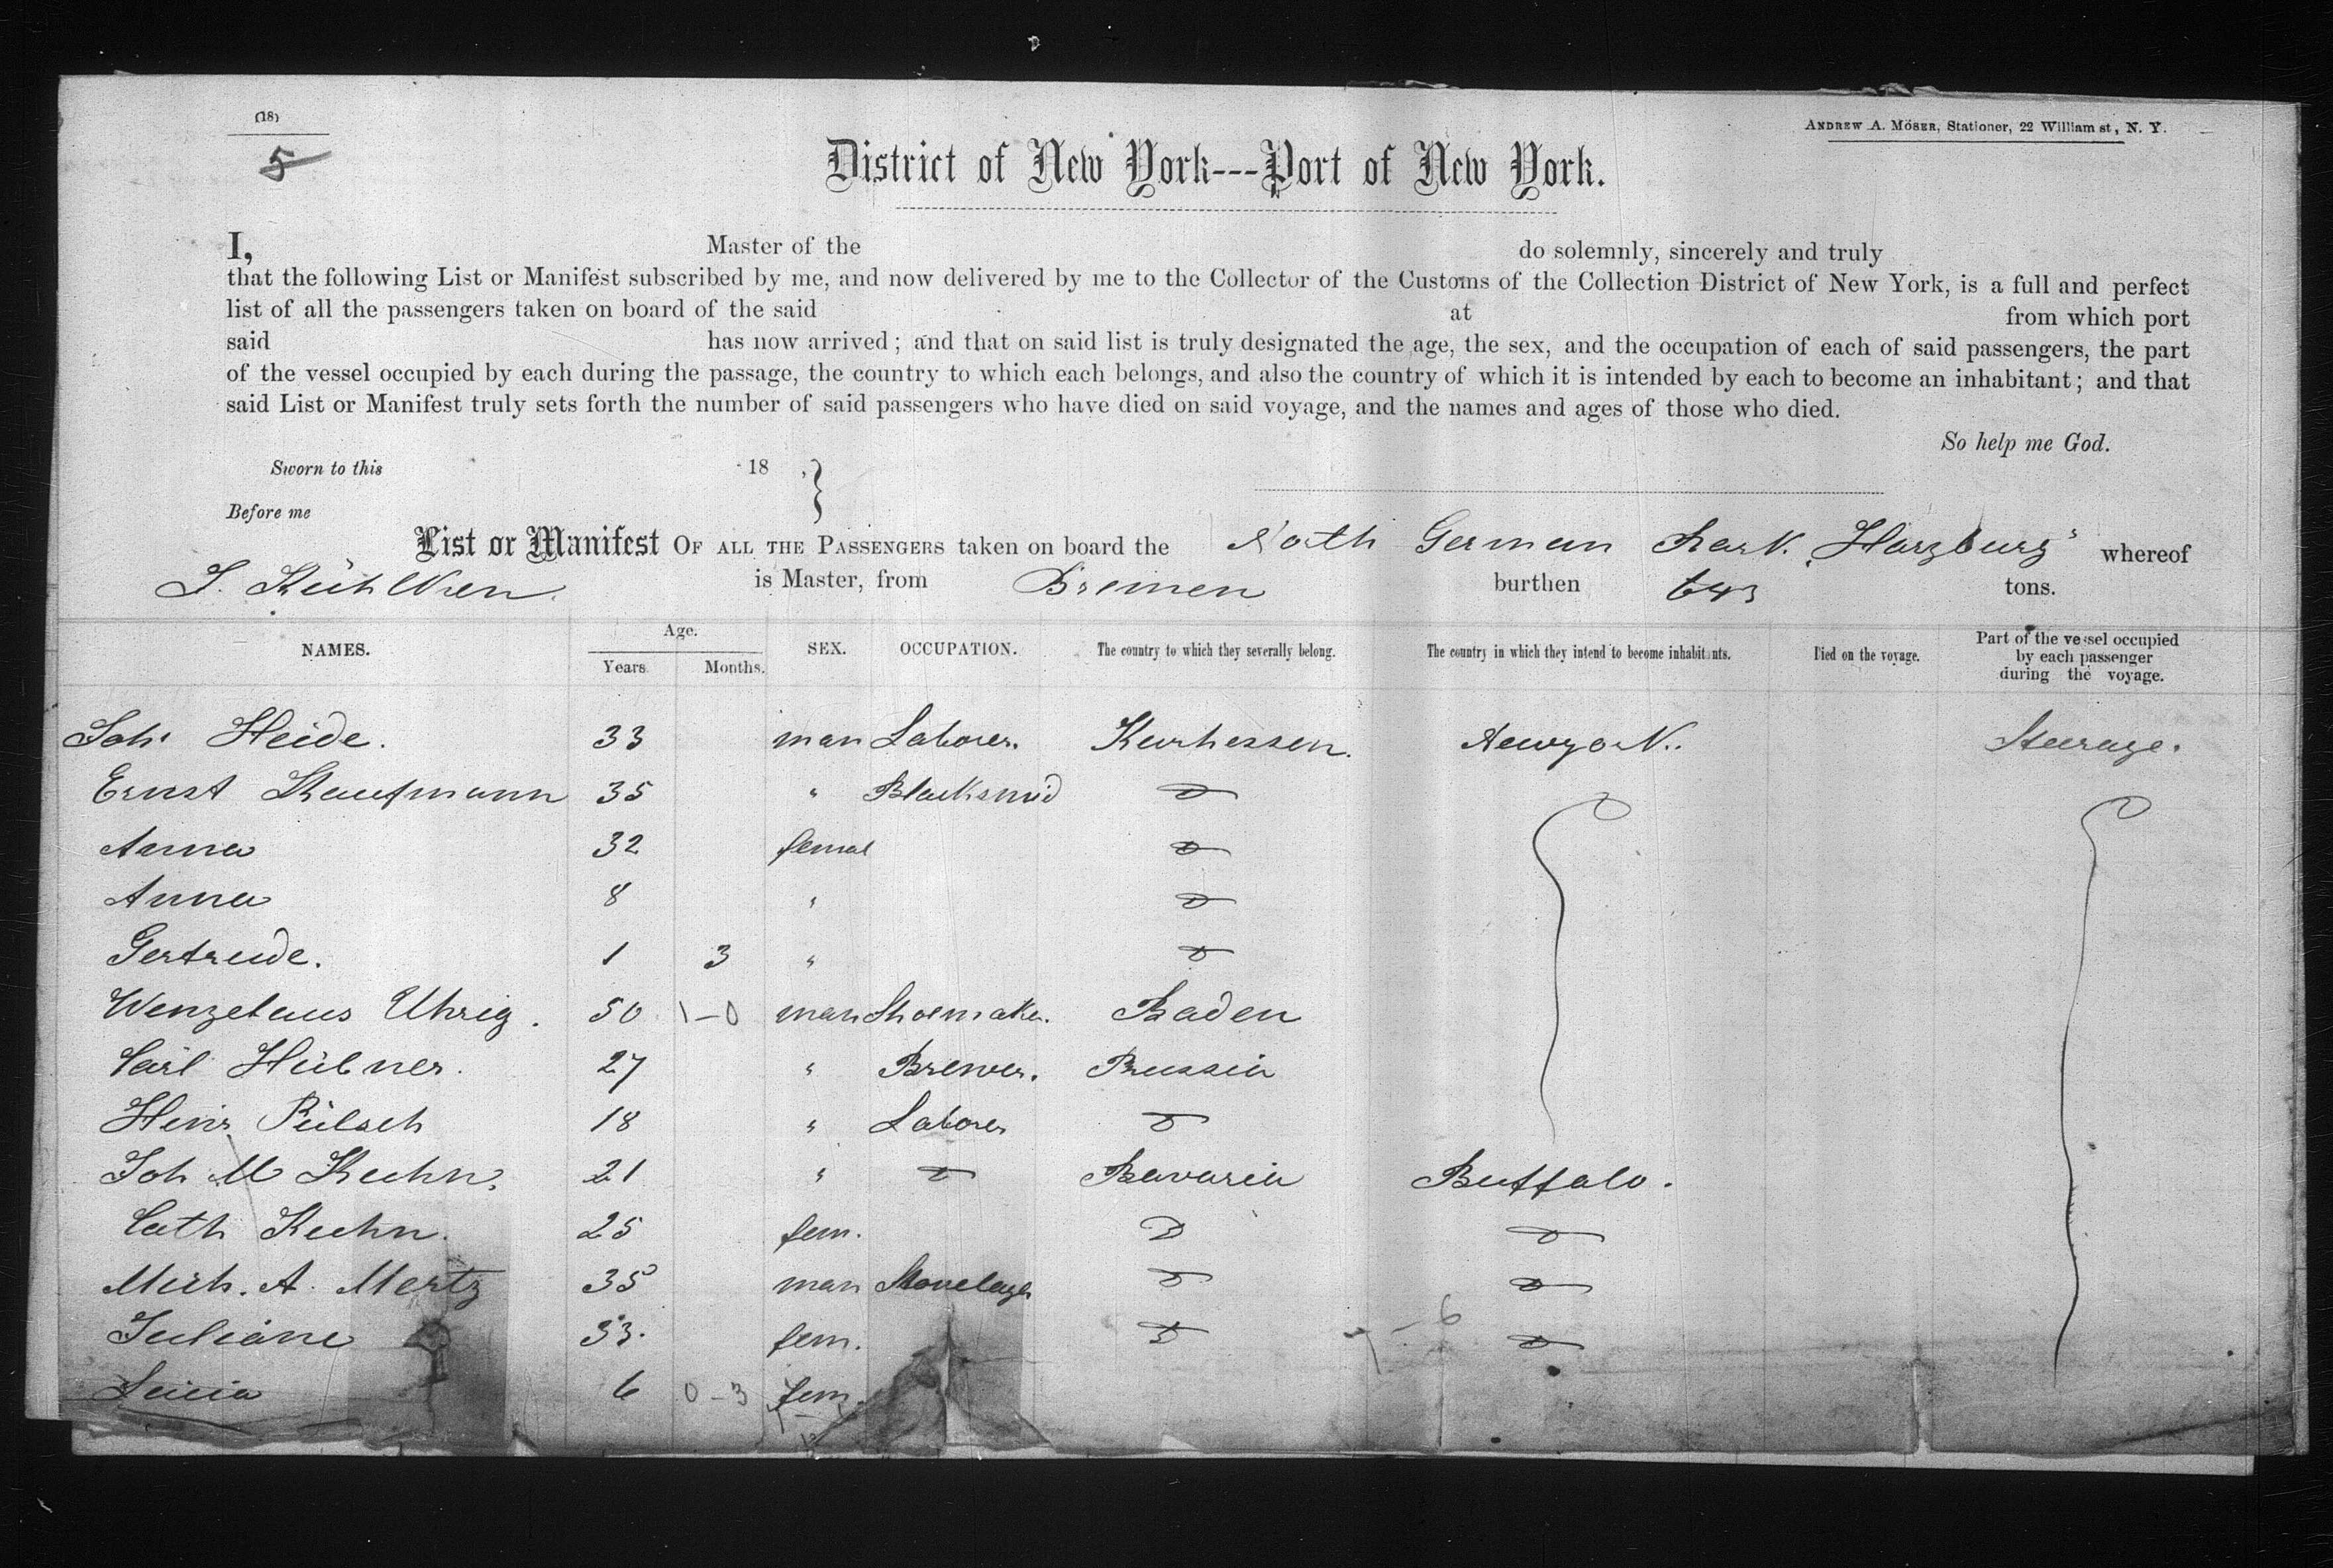 (18)
5
ANDREW A. MÖSER, Stationer, 22 William st, N. Y.
District of New York---Port of New York.
I, Master of the do solemnly, sincerely and truly
that the following List or Manifest subscribed by me, and now delivered by me to the Collector of the Customs of the Collection District of New York, is a full and perfect
list of all the passengers taken on board of the said at from which port
said has now arrived; and that on said list is truly designated the age, the sex, and the occupation of each of said passengers, the part
of the vessel occupied by each during the passage, the country to which each belongs, and also the country of which it is intended by each to become an inhabitant; and that
said List or Manifest truly sets forth the number of said passengers who have died on said voyage, and the names and ages of those who died.
So help me God.
Sworn to this 18
Before me
List or Manifest OF ALL THE PASSENGERS taken on board the North German Bark „Harzburg" whereof
is Master, from Bremen burthen 643 tons.
NAMES. Age. Years Months. SEX. OCCUPATION. The country to which they severally belong. The country in which they intend to become inhabitants. Died on the voyage. Part of the vessel occupied by each passenger during the voyage.
Joh. Heide. 33 man Laborer. Kurhessen. Newyork. Steerage.
Ernst Kaufmann 35 " Blacksmid do
Anna 32 femal do
Anna 8 " do
Gertrude. 1 3 " do
Wenzelaus Uhrig. 50 1-0 man Shoemaker. Baden
Carl Hübner. 27 " Brewer. Prussia
Heinr 18 " Laborer do
Joh M Kuhn. 21 " do Bavaria Buffalo.
Cath Kuhn. 25 fem. do do
Mich. A. Mertz 35 man do do
Juliane 33. fem. do do
6 0-3 fem.